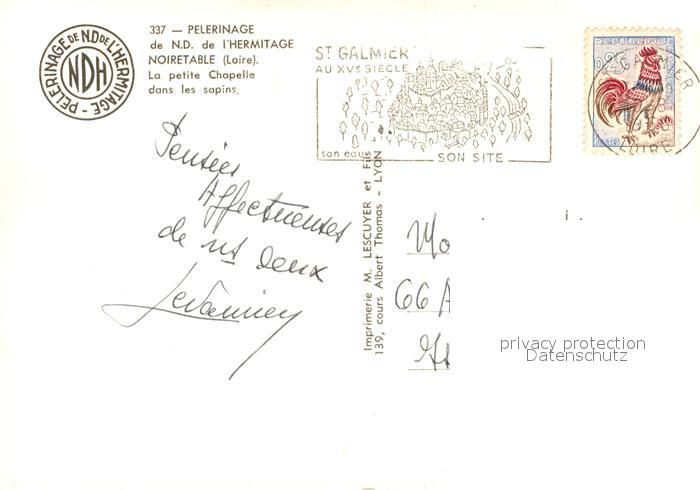 PELERINAGE DE N.D DE L'HERMITAGE -
NDH
337 — PELERINAGE
de N.D. de l'HERMITAGE
NOIRETABLE (Loire).
La petite Chapelle
dans les sapins.
ST GALMIER
AU XVe SIECLE
son eau
SON SITE
REPUBLIQUE
0,25
POSTES
ST GALMIER
LOIRE
Pensées
Affectueuses
de ns deux
Imprimerie M. LESCUYER et Fils
139, cours Albert Thomas - LYON
Mo
66 A
privacy protection
Datenschutz